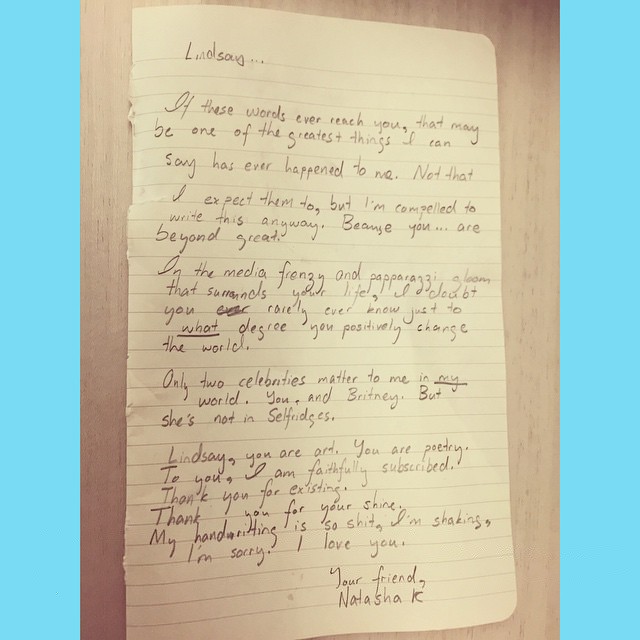 Lindsay...
If these words ever reach you, that may
be one of the greatest things I can
say has ever happened to me. Not that
I expect them to, but I'm compelled to
write this anyway. Beause you... are
beyond great.
In the media frenzy and papparazzi gloom
that surrounds your life, I doubt
you ever rarely ever know just to
what degree you positively change
the world.
Only two celebrities matter to me in my
world. You, and Britney. But
she's not in Selfridges.
Lindsay, you are art. You are poetry.
To you, I am faithfully subscribed.
Thank you for existing.
Thank you for your shine.
My handwriting is so shit, I'm shaking,
I'm sorry. I love you.
Your friend,
Natasha K